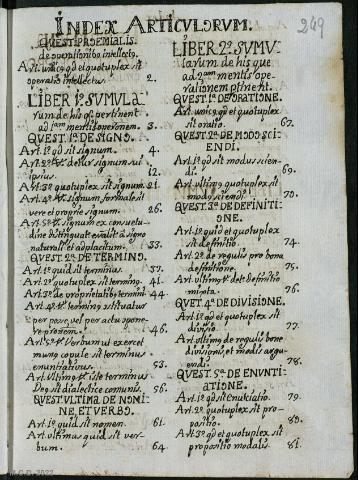 INDEX ARTICULORUM.
249
QUEST. PROEMIALIS.
de operationibus intellectus
Art. unicus qd et quotuplex sit
operatio intellectus. 2.
LIBER 1us SUMULA
rum de his que pertinent
ad 1am mentis operonem. 3.
QUEST. 1a DE SIGNO.
Art. 1us qd sit signum. 4.
Art. 2us detur signum sui
ipsius. 12.
Art. 3us quotuplex sit signum. 21.
Art. 4us signum formale sit
vere et proprie signum. 26.
Art. signum ex consuetu-
dine distinguatur a signo
naturali et ad placitum. 33.
QUEST. 2a DE TERMINO.
Art. 1us quid sit terminus. 37.
Art. 2us quotuplex sit termin. 41.
Art. 3us de proprietatib. termini 44
Art. 4us terminus
46.
Art. 5us Verbum ut exercet
munq copule sit terminus
enuntiationis. 53.
Art. Ultimus iste terminus
Deus sit dialectice comunis. 56.
QUEST. ULTIMA DE NOMI
NE, ET VERBO.
Art. 1us quid sit nomen. 61.
Art. ultimus quid sit ver-
bum. 64.
LIBER 2us SUMU
larum de his que
ad 2am mentis ope-
rationem ptinent.
QUEST. 1a DE ORATIONE.
Art. unicus qd et quotuplex
sit oratio. 67.
QUEST. 2a DE MODO SCI
ENDI.
Art. 1us qd sit modus scien-
di. 69.
Art. ultimus quotuplex sit
modus sciendi. 70.
QUEST. 3a DE DEFINITI-
ONE.
Art. 1us quid et quotuplex
sit definitio. 74.
Art. 2us de regulis pro bona
definitione. 75.
Art. ultimus detur definitio
76.
QUEST. 4a DE DIVISIONE.
Art. 1us qd et quotuplex sit
divisio. 77.
Art. ultimus de regulis bone
divisionis, et modis argu-
endi. 78.
QUEST. 5a DE ENUNTI-
ATIONE.
Art. 1us qd sit enuntiatio. 79.
Art. 2us quotuplex sit pro-
positio. 80.
Art. 3us qd et quotuplex sit
propositio modalis. 81.